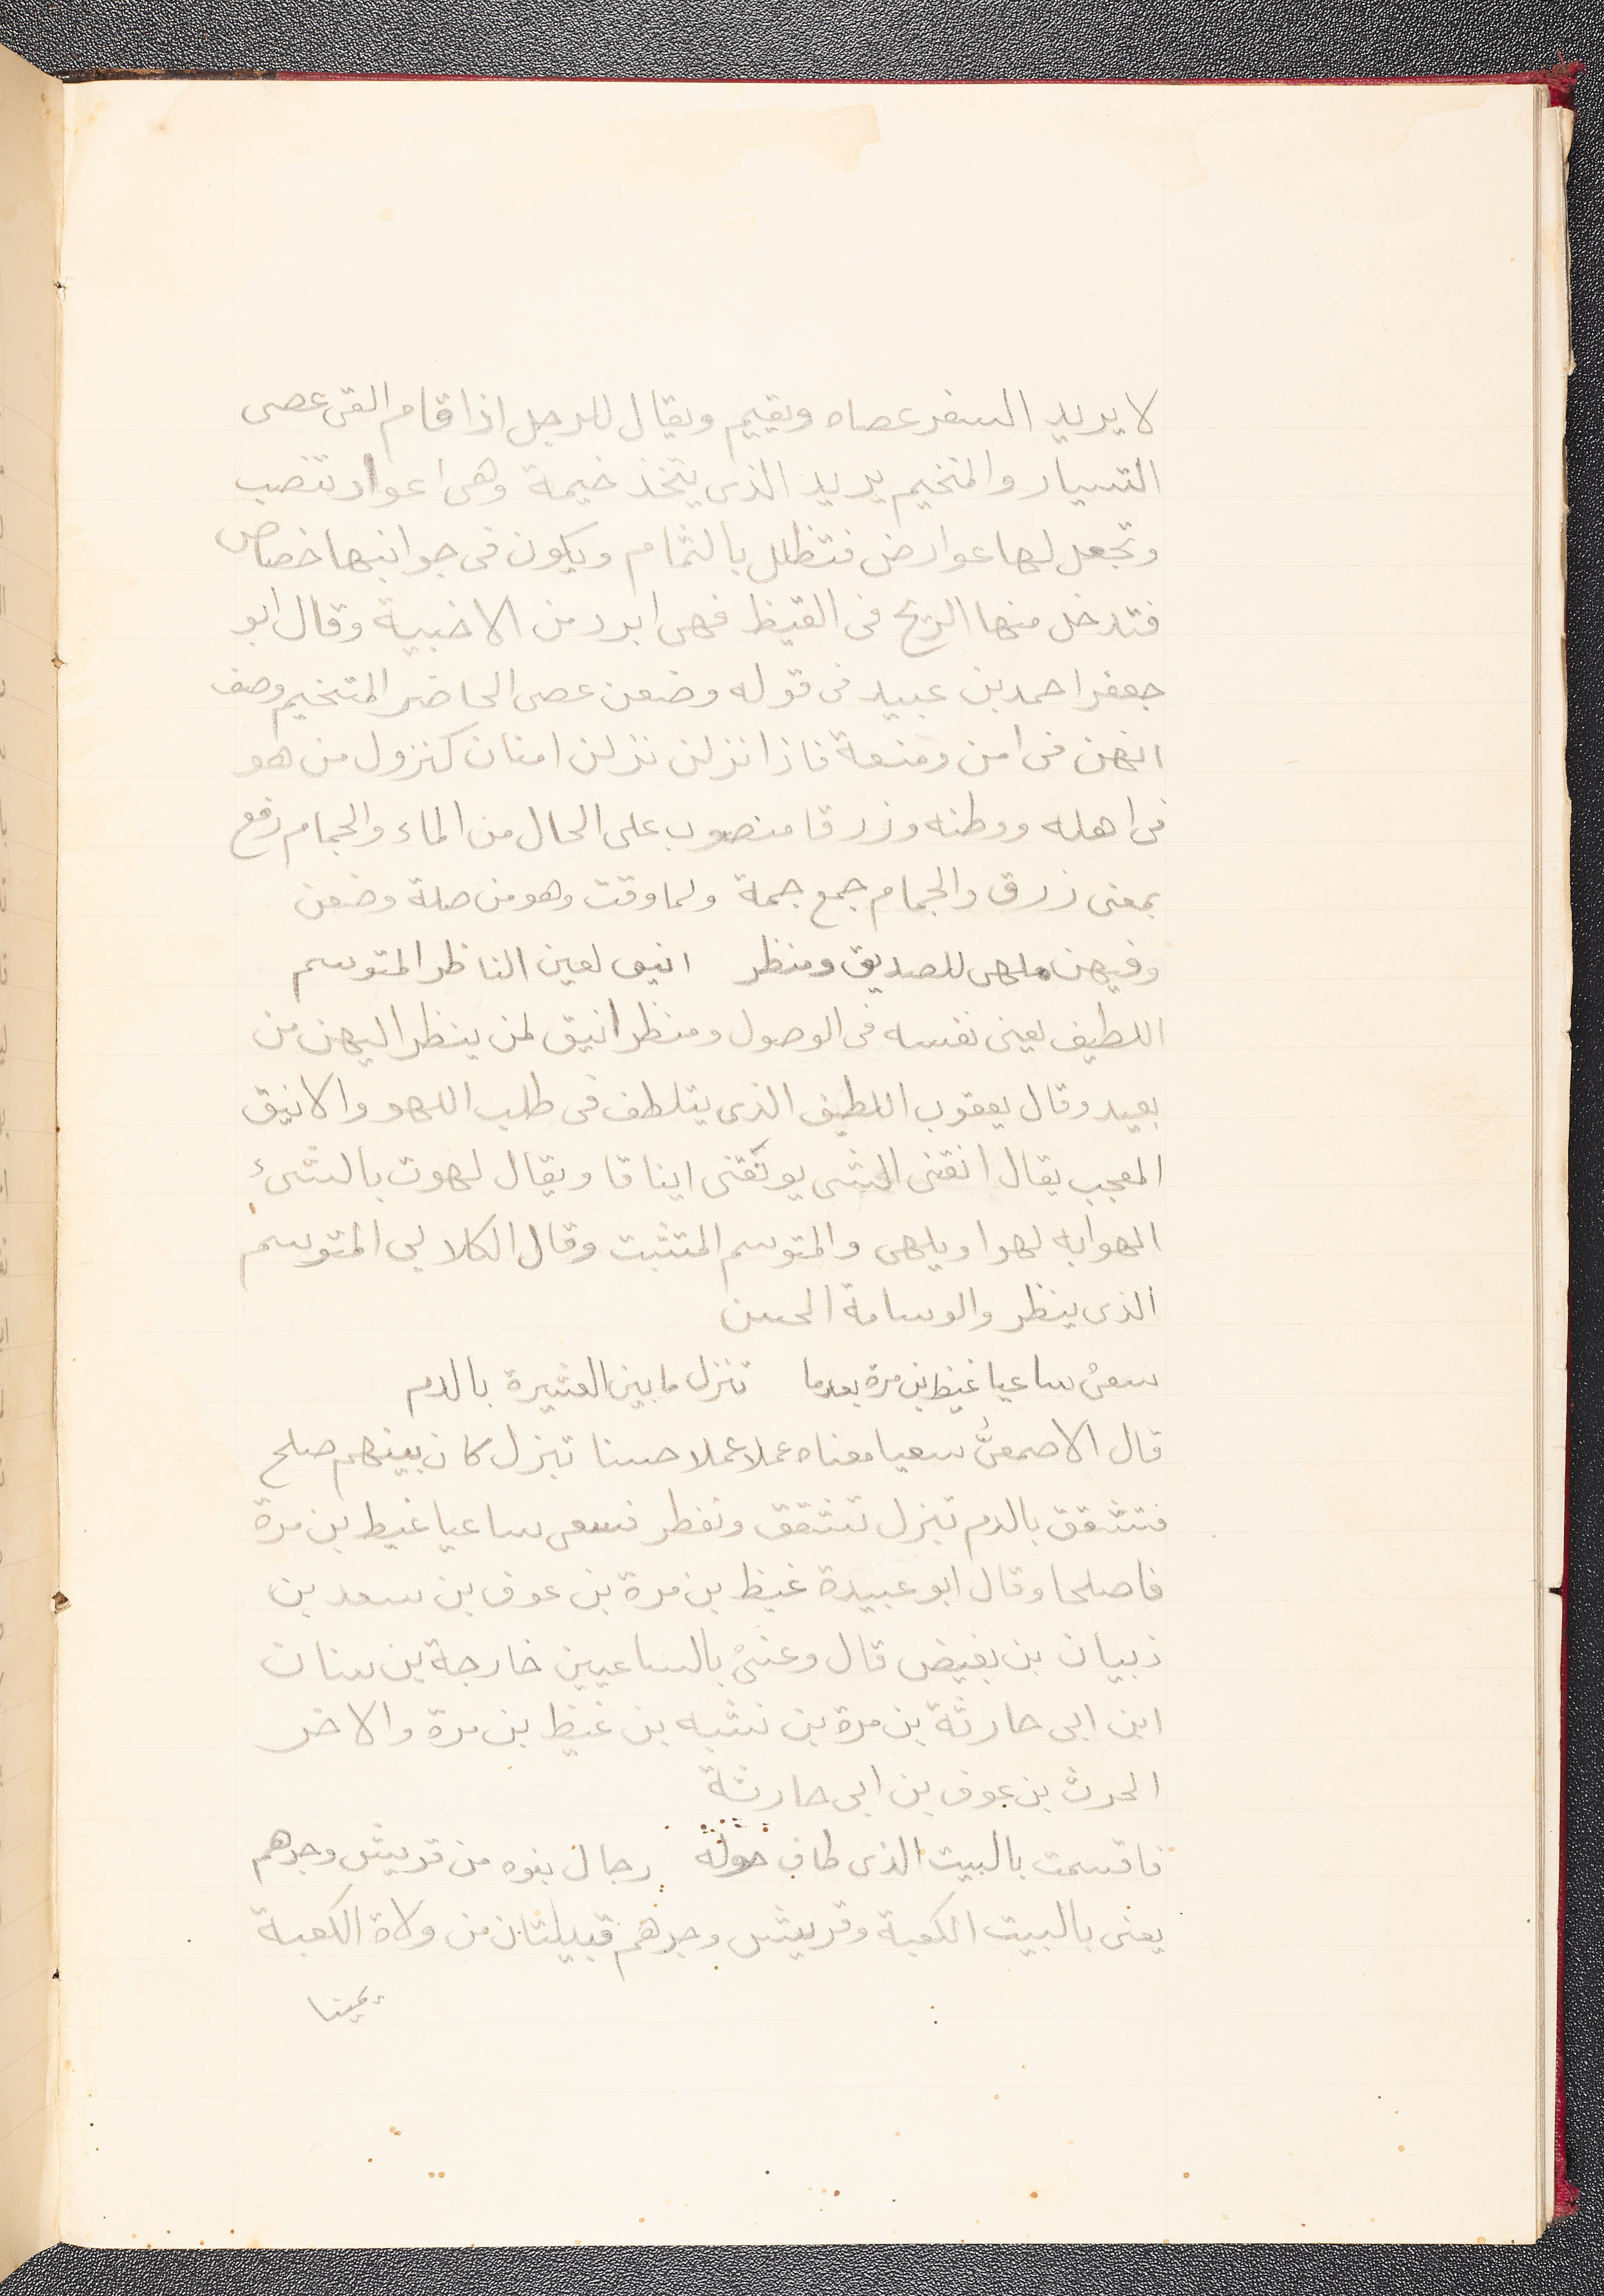 لا يريد السفر عصاه ويقيم ويقال للرجل اذا قام القى عصى
التسيار والمتخيم يريد الذى يتخذ خيمة وهى اعواد تنصب
وتجعل لها عوارض فتظلل بالثمام ويكون فى جوانبها خصاص
فتدخل منها الريح فى القيظ فهى ابرد من الاخبية وقال ابو
جعفر احمد بن عبيد فى قوله وضعن عصى الحاضر المتخيم وصف
انهن فى امن ومنعة فاذا نزلن نزلن امنات كنزول من هو
فى اهله ووطنه وزرقا منصوب على الحال من الماء والجمام رفع
بمعنى زرق والجمام جمع جمة ولما وقت وهو من صلة وضعن
وفيهن ملهى للصديق ومنظر انيق لعين الناظر المتوسم
اللطيف يعنى نفسه فى الوصول ومنظر انيق لمن ينظر اليهن من
بعيد وقال يعقوب اللطيف الذى يتلطف فى طلب اللهو والانيق
المعجب يقال انقنى الشى يونقنى ايناقا ويقال لهوت بالشىء
الهوا به لهوا ويلهى والمتوسم المتثبت وقال الكلابى المتوسم
الذى ينظر والوسامة الحسن
سعى ساعيا غيظ بن مرة بعدما تنزل ما بين العشيرة بالدم
قال الاصمعى سعيا معناه عملا عملا حسنا تبزل كان بينهم صلح
فتشقق بالدم تبزل تشقق وتفطر فسعى ساعيا غيط بن مرة
فاصلحا وقال ابو عبيدة غيظ بن مرة بن عوف بن سعد بن
ذبيان بن بغيض قال وعنى بالساعيين خارجة بن سنان
ابن ابى حارثة بن مرة بن نشبه بن غيظ بن مرة والاخر
الحرث بن عوف بن ابى حارثة
فاقسمت بالبيت الذى طاف حوله رجال بنوه من قريش وجرهم
يعنى بالبيت الكعبة وقريش وجرهم قبيلتان من ولاة الكعبة
يمينا